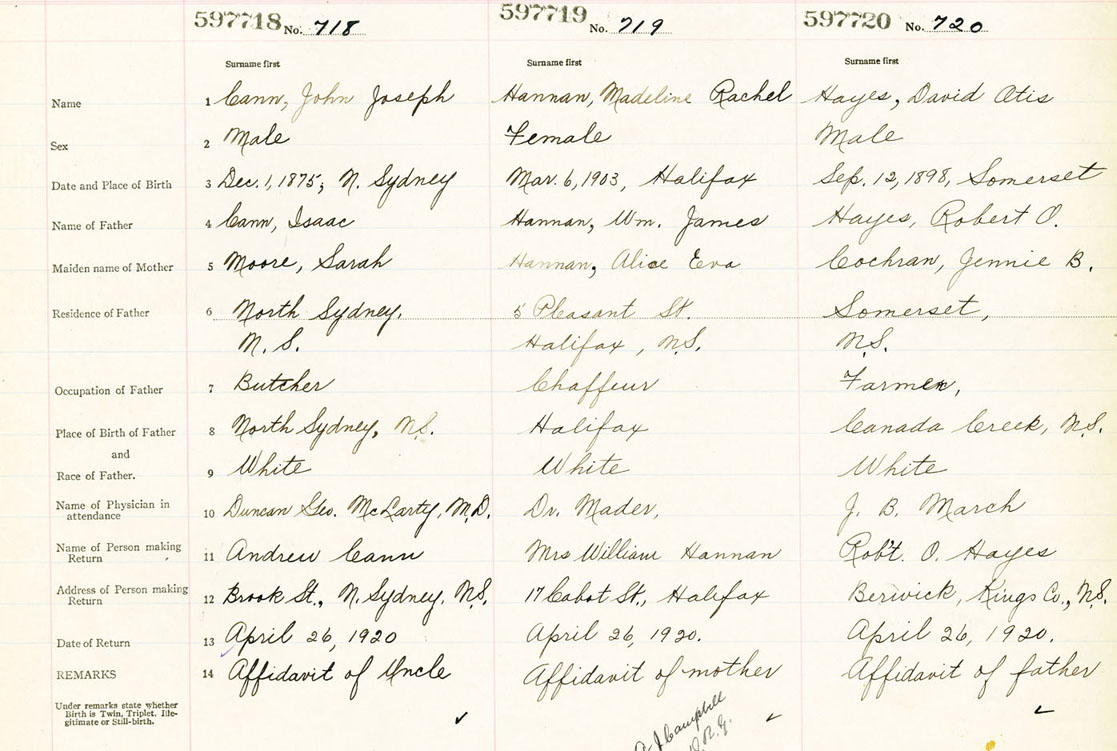 597718 No. 718 597719 No. 719 597720 No. 720
Surname first Surname first Surname first
Name 1 Cann, John Joseph Hannan, Madeline Rachel Hayes, David Otis
Sex 2 Male Female Male
Date and Place of Birth 3 Dec. 1, 1875, N. Sydney Mar. 6, 1903, Halifax Sep. 12, 1898, Somerset
Name of Father 4 Cann, Isaac Hannan, Wm. James Hayes, Robert O.
Maiden name of Mother 5 Moore, Sarah Hannan, Alice Eva Cochran, Jennie B.
Residence of Father 6 North Sydney, 5 Pleasant St. Somerset,
N.S. Halifax, N.S. N.S.
Occupation of Father 7 Butcher Chaffeur Farmer,
Place of Birth of Father 8 North Sydney, N.S. Halifax Canada Creek, N.S.
and
Race of Father. 9 White White White
Name of Physician in
attendance 10 Duncan Geo. McCarty, M.D. Dr. Mader, J. B. March
Name of Person making
Return 11 Andrew Cann Mrs William Hannan Robt. O. Hayes
Address of Person making
Return 12 Brook St., N. Sydney, N.S. 17 Cabot St., Halifax Berwick, Kings Co., N.S.
Date of Return 13 April 26, 1920 April 26, 1920. April 26, 1920.
REMARKS 14 Affidavit of Uncle Affidavit of mother Affidavit of father
Under remarks state whether
Birth is Twin, Triplet, Ille-
gitimate or Still-birth.
Campbell
D.R.G.